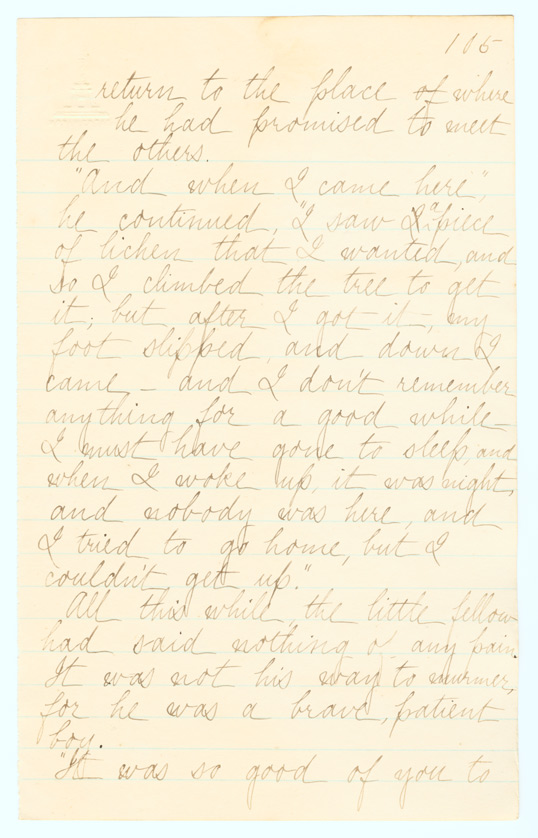 105
return to the place of where
he had promised to meet
the others.
"And when I came here",
he continued, "I saw a piece
of lichen that I wanted, and
so I climbed the tree to get
it; but after I got it –, my
foot slipped, and down I
came – and I don't remember
anything for a good while –
I must have gone to sleep, and
when I woke up, it was night,
and nobody was here, and
I tried to go home, but I
couldn't get up."
All this while, the little fellow
had said nothing of any pain.
It was not his way to murmer,
for he was a brave, patient
boy.
"It was so good of you to